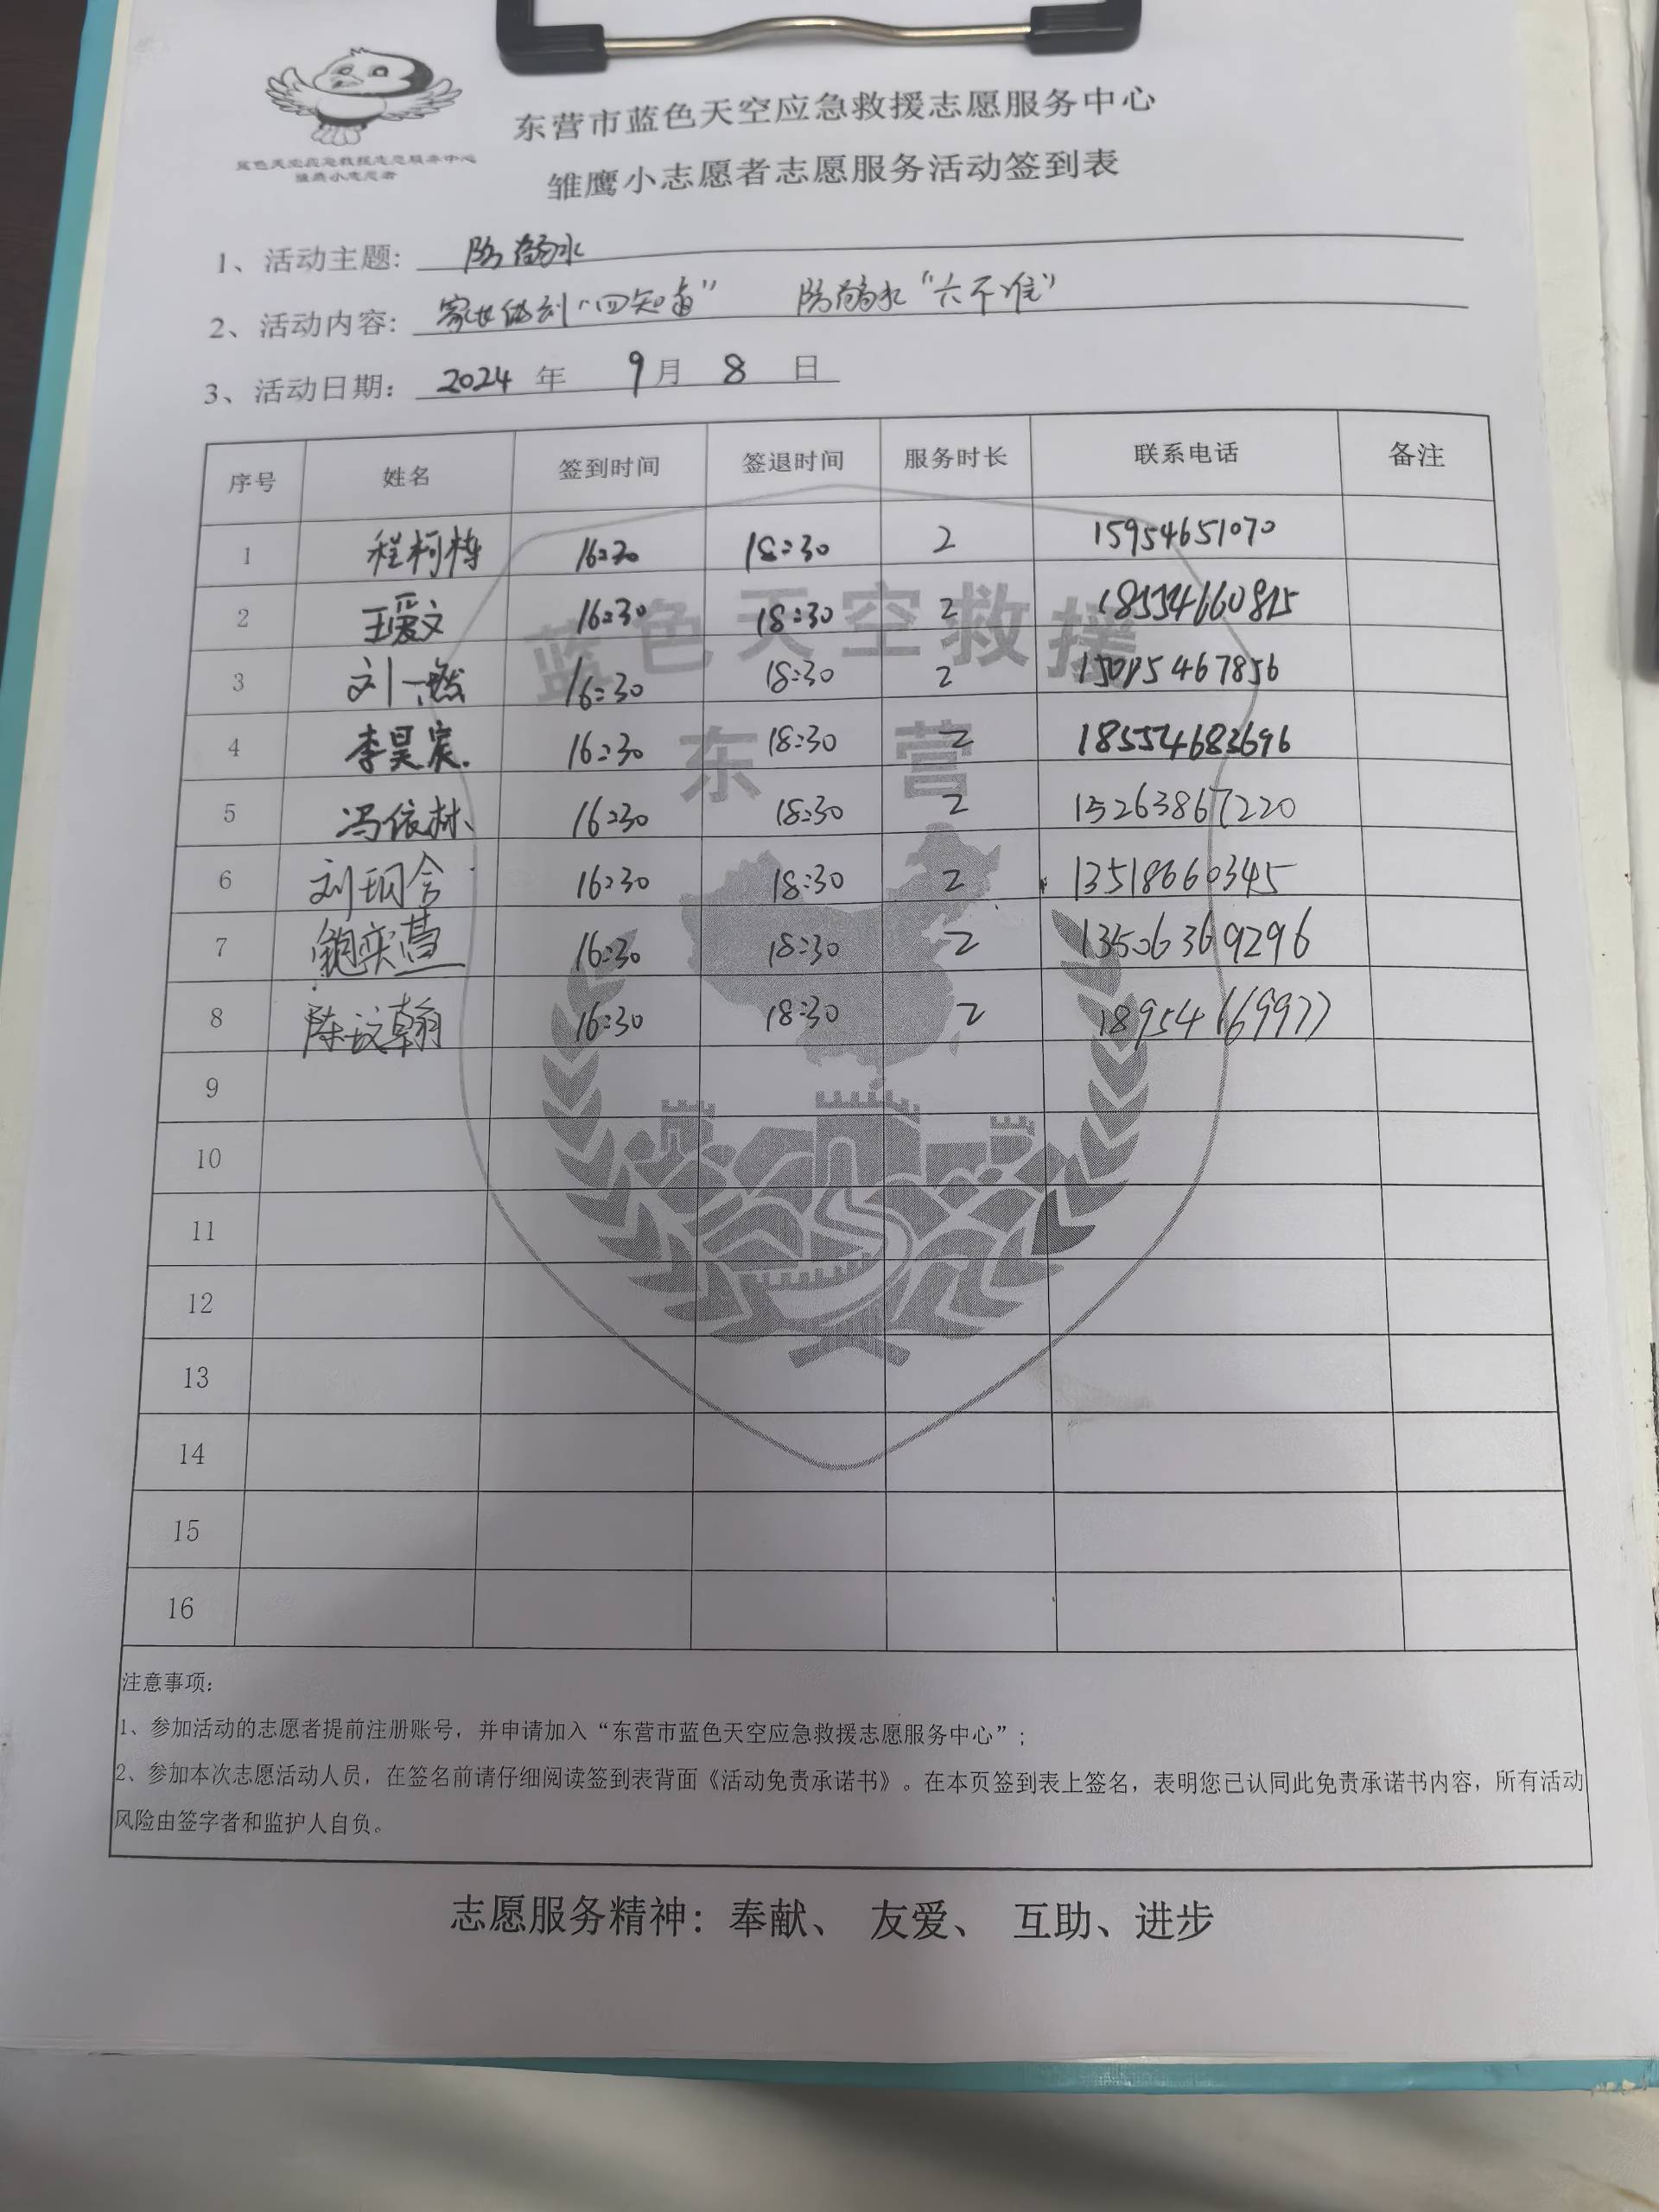 蓝色天空应急救援志愿服务中心
雏鹰小志愿者
东营市蓝色天空应急救援志愿服务中心
雏鹰小志愿者志愿服务活动签到表
1、活动主题: 防溺水
2、活动内容: 家长做到“四知道” 防溺水“六不准”
3、活动日期: 2024 年 9 月 8 日
序号 姓名 签到时间 签退时间 服务时长 联系电话 备注
1 程柯栋 16:30 18:30 2 15954651070
2 王爱文 16:30 18:30 2 18554660815
3 刘一燃 16:30 18:30 2
4 李昊宸 16:30 18:30 2 18554683696
5 冯依林 16:30 18:30 2 15263867220
6 刘玥含 16:30 18:30 2 13518660345
7 鲍奕萱 16:30 18:30 2 13506369296
8 陈文翰 16:30 18:30 2 18954669977
9
10
11
12
13
14
15
16
蓝色天空救援
东营
注意事项:
1、参加活动的志愿者提前注册账号，并申请加入“东营市蓝色天空应急救援志愿服务中心”;
2、参加本次志愿活动人员，在签名前请仔细阅读签到表背面《活动免责承诺书》。在本页签到表上签名，表明您已认同此免责承诺书内容，所有活动
风险由签字者和监护人自负。
志愿服务精神: 奉献、 友爱、 互助、进步